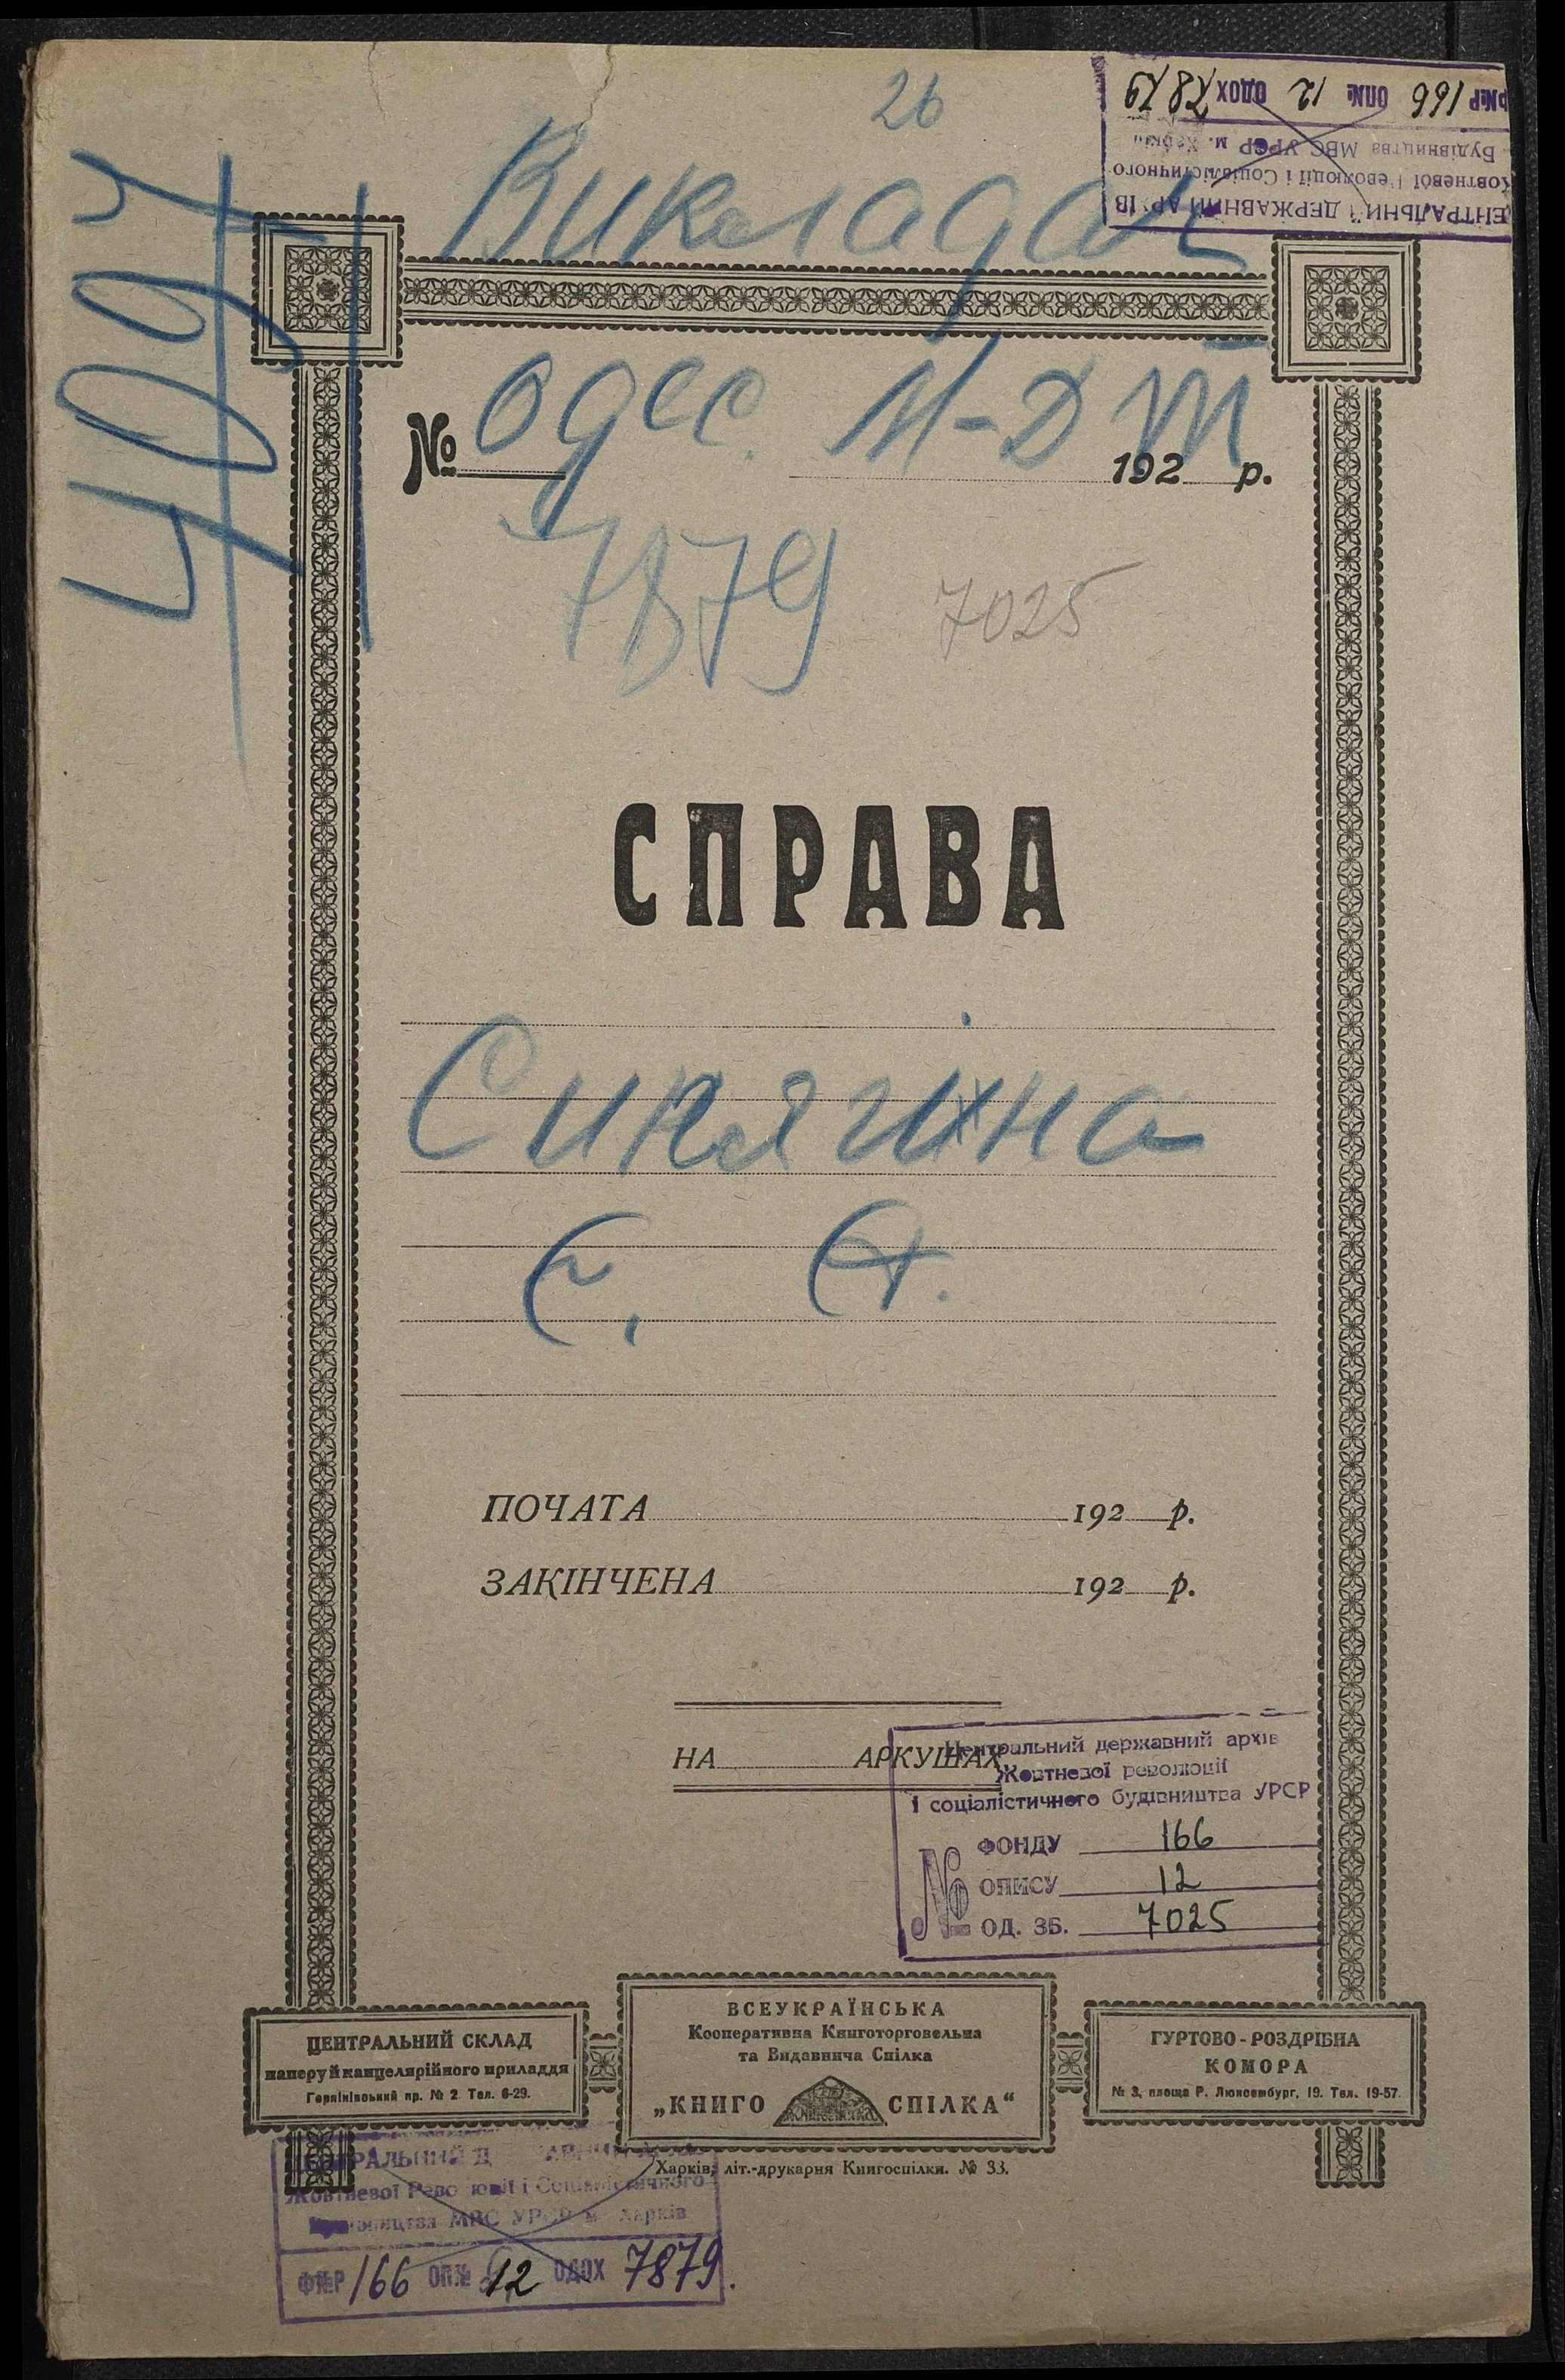 26
Викладач
4094
Р№Р 166 ОП№ 12 ОДОХ 7879
ЕНТРАЛЬНИЙ ДЕРЖАВНИЙ АРХІВ
Жовтневої Революції і Соціалістичного
Будівництва МВС УРСР м. Харків
№ Одес. М-ДТ 192 р.
7879 7025
СПРАВА
Синягіна
Є. Я.
ПОЧАТА 192 р.
ЗАКІНЧЕНА 192 р.
НА АРКУШАХ
Центральний державний архів
Жовтневої революції
і соціалістичного будівництва УРСР
№ ФОНДУ 166
ОПИСУ 12
ОД. ЗБ. 7025
ЦЕНТРАЛЬНИЙ СКЛАД
паперу й канцелярійного приладдя
Горяінівський пр. № 2 Тел. 6-29.
ВСЕУКРАЇНСЬКА
Кооперативна Книготорговельна
та Видавнича Спілка
„КНИГО СПІЛКА“
ГУРТОВО-РОЗДРІБНА
КОМОРА
№ 3, площа Р. Люксембург, 19. Тел. 19-57.
Харків, літ.-друкарня Книгоспілки. № 33.
Жовтневої Революції і Соціалістичного
МВС УРСР м. Харків
Ф№Р 166 ОП№ 12 ОДОХ 7879.